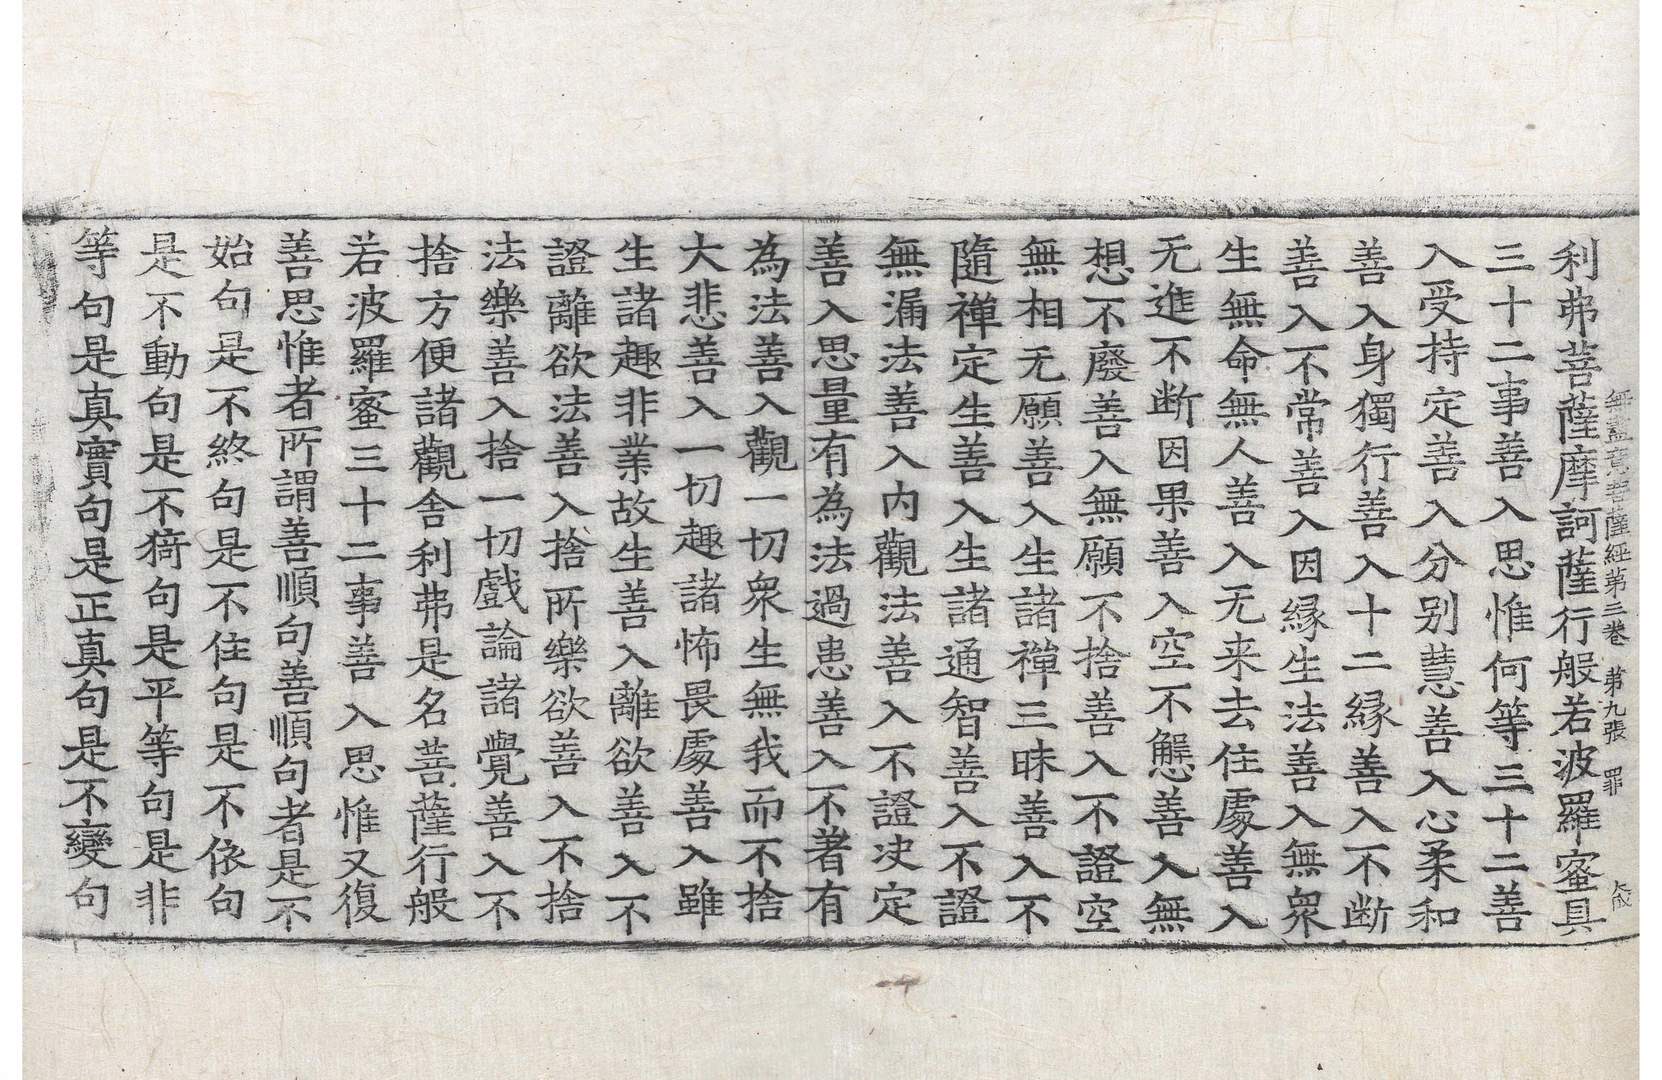 利弗菩薩摩訶薩行般若波羅蜜具
無盡意菩薩經第三卷 第九張 罪
三十二事善入思惟何等三十二善
入受持定善入分别慧善入心柔和
善入身獨行善入十二緣善入不断
善入不常善入因緣生法善入無衆
生無命無人善入无来去住處善入
无進不断因果善入空不懈善入無
想不廢善入無願不捨善入不證空
無相无願善入生諸禪三昧善入不
隨禪定生善入生諸通智善入不證
無漏法善入内觀法善入不證决定
善入思量有為法過患善入不著有
為法善入觀一切衆生無我而不捨
大悲善入一切趣諸怖畏處善入雖
生諸趣非業故生善入離欲善入不
證離欲法善入捨所樂欲善入不捨
法樂善入捨一切戲論諸覺善入不
捨方便諸觀舍利弗是名菩薩行般
若波羅蜜三十二事善入思惟又復
善思惟者所謂善順句善順句者是不
始句是不終句是不住句是不依句
是不動句是不猗句是平等句是非
等句是真實句是正真句是不變句